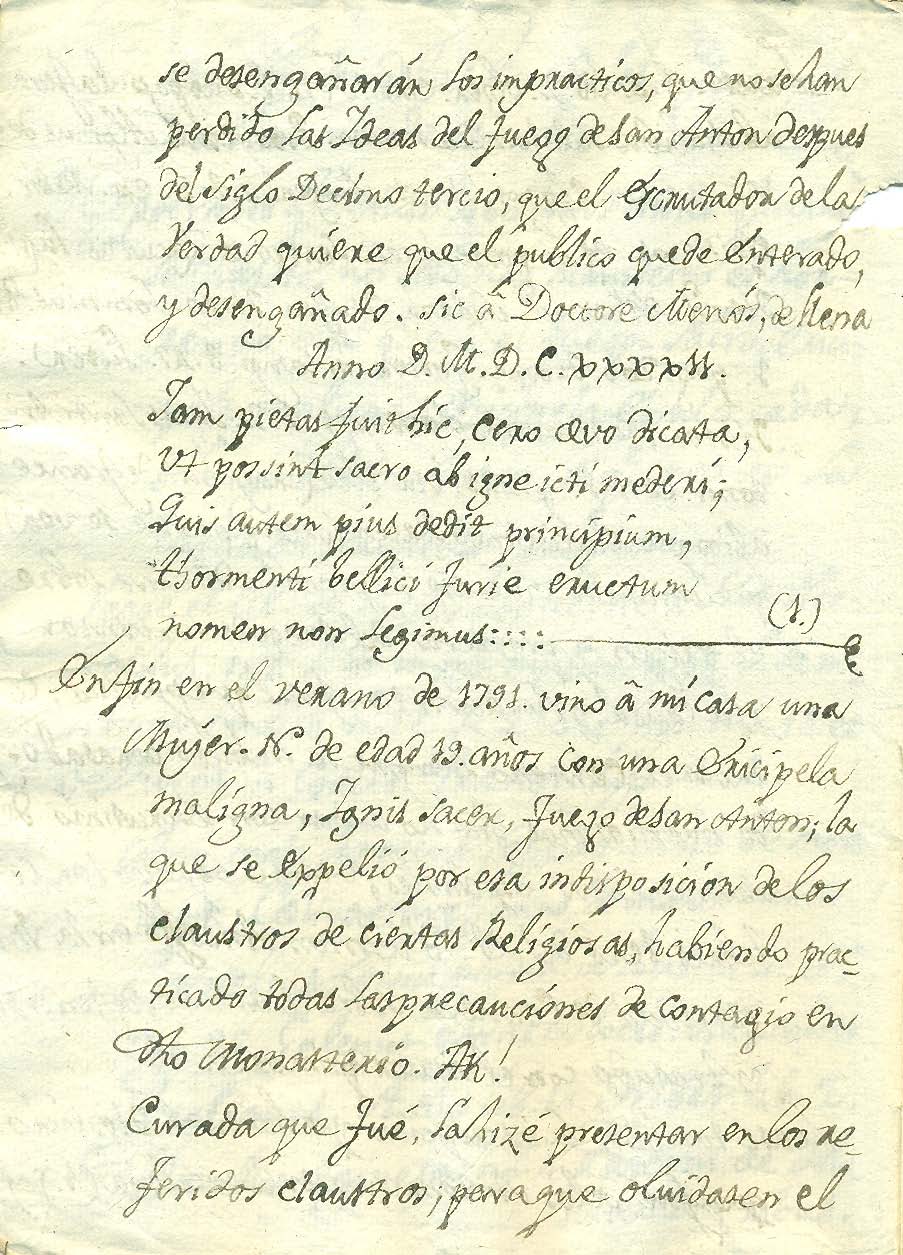 se desengañarán los impracticos, que no se han
perdido las Ideas del fuego de san Anton despues
del siglo Decimo tercio, que el Escrutador de la
Verdad quiere que el publico quede Enterado,
y desengañado. Sic â Doctore Menós, de Llena
Anno D. M. D. C. XXXXII.
Jam pietas fuit hic, cero ævo dicata,
Vt possint sacro ab igne icti mederi;
Quis autem pius dedit principium,
thormenti bellici furie eructum
nomen non legimus:::: (1.)
Enfin en el verano de 1791. vino â mi casa una
Mujer. N. de edad 19. años con una Ericipela
maligna, Ignis sacer, fuego de san Anton; la
que se expelió por esa indisposicion de los
claustros de ciertas Religiosas, habiendo prac-
ticado todas las precauciónes de contagio en
dho Monasterio. Ah!
Curada que fué, la hizé presentar en los re-
feridos claustros; para que olvidasen el